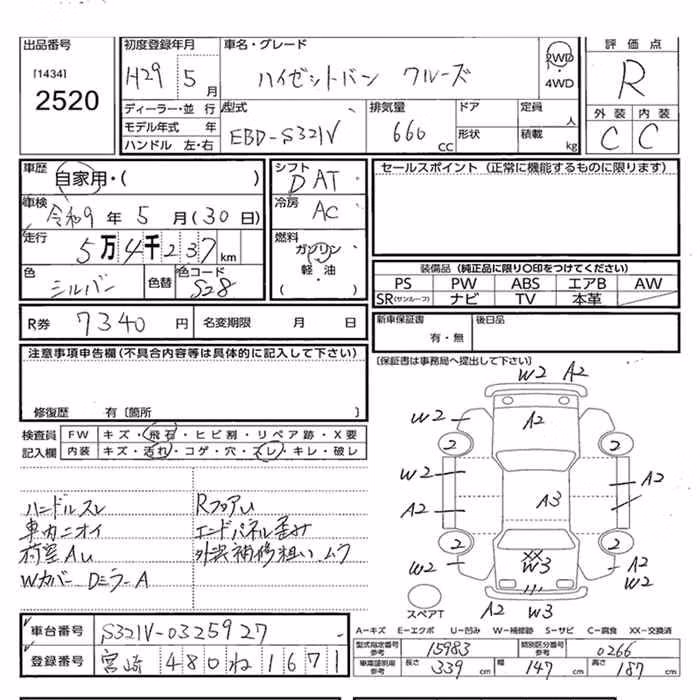 出品番号
[1434]
2520
初度登録年月
H29 5 月
車名・グレード
ハイゼットバン クルーズ
2WD
・
4WD
評価点
R
外装 内装
C C
ディーラー・並行
モデル年式 年
ハンドル 左・右
型式
EBD-S321V
排気量
660 cc
ドア
形状
定員
人
積載
kg
車歴
自家用・( )
車検
令和9 年 5 月 (30日)
走行
5万4千237 km
色
シルバー
色替
色コード
S28
シフト
DAT
冷房
AC
燃料
ガソリン
・
軽・油
( )
セールスポイント (正常に機能するものに限ります)
装備品 (純正品に限り〇印をつけてください)
PS PW ABS エアB AW
SR(サンルーフ) ナビ TV 本革
R券 7340 円
名変期限 月 日
新車保証書
有・無
後日品
[保証書は事務局へ提出して下さい]
注意事項申告欄 (不具合内容等は具体的に記入して下さい)
修復歴 有 [箇所 ]
検査員
記入欄
FW キズ・飛石・ヒビ割・リペア跡・X要
内装 キズ・汚れ・コゲ・穴・スレ・キレ・破レ
ハンドルスレ
車内ニオイ
荷室AU
Wカバー DミラーA
RフロアU
エンドパネル歪み
外装補修粗い、ムラ
W2 A2
W2
A2
2 2
W2
A2
A2
A3
2 2
W2
XX
W3
A2
W2
A2 W3
スペアT
A-キズ E-エクボ U-凹み W-補修跡 S-サビ C-腐食 XX-交換済
車台番号 S321V-0325927
登録番号 宮崎 480 ね 1671
型式指定番号
参考
15983
類別区分番号
参考
0266
車庫証明用
参考
長さ 339 cm
幅 147 cm
高さ 187 cm